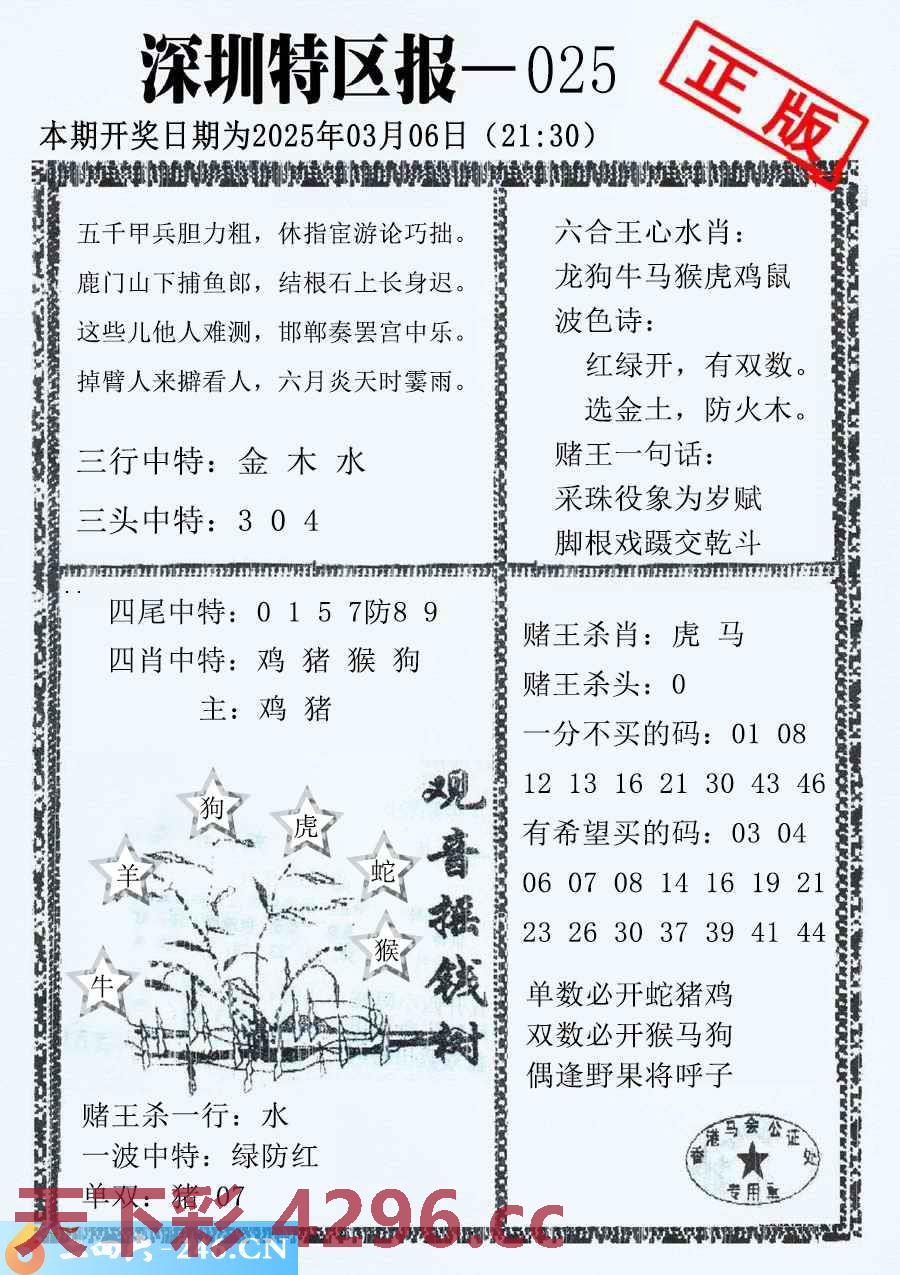 深圳特区报—025
正版
本期开奖日期为2025年03月06日（21:30）
五千甲兵胆力粗，休指宦游论巧拙。
鹿门山下捕鱼郎，结根石上长身迟。
这些儿他人难测，邯郸奏罢宫中乐。
掉臂人来擗看人，六月炎天时霎雨。
三行中特：金 木 水
三头中特：3 0 4
六合王心水肖：
龙狗牛马猴虎鸡鼠
波色诗：
红绿开，有双数。
选金土，防火木。
赌王一句话：
采珠役象为岁赋
脚根戏蹑交乾斗
四尾中特：0 1 5 7防8 9
四肖中特：鸡 猪 猴 狗
主：鸡 猪
狗
虎
羊
蛇
猴
牛
观音摇钱树
赌王杀一行：水
一波中特：绿防红
单双：猪 07
赌王杀肖：虎 马
赌王杀头：0
一分不买的码：01 08
12 13 16 21 30 43 46
有希望买的码：03 04
06 07 08 14 16 19 21
23 26 30 37 39 41 44
单数必开蛇猪鸡
双数必开猴马狗
偶逢野果将呼子
香港马会公证处
专用章
天下彩 4296.cc
246.CN